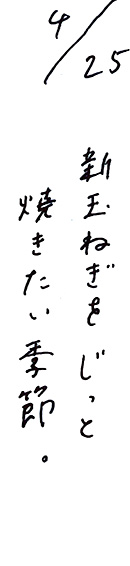 4/25
新玉ねぎをじっと
焼きたい季節。